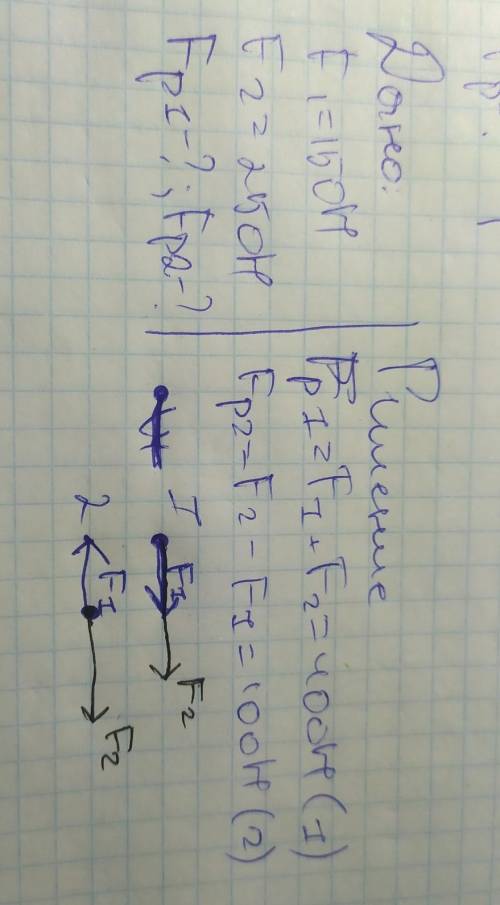 Дано:
F₁=150Н
F₂=250Н
Fр1-?; Fр2-?
Решение
Fр1=F1+F2=400Н (1)
Fр2=F2-F1=100Н (2)
1 F1 F2
2 F1 F2